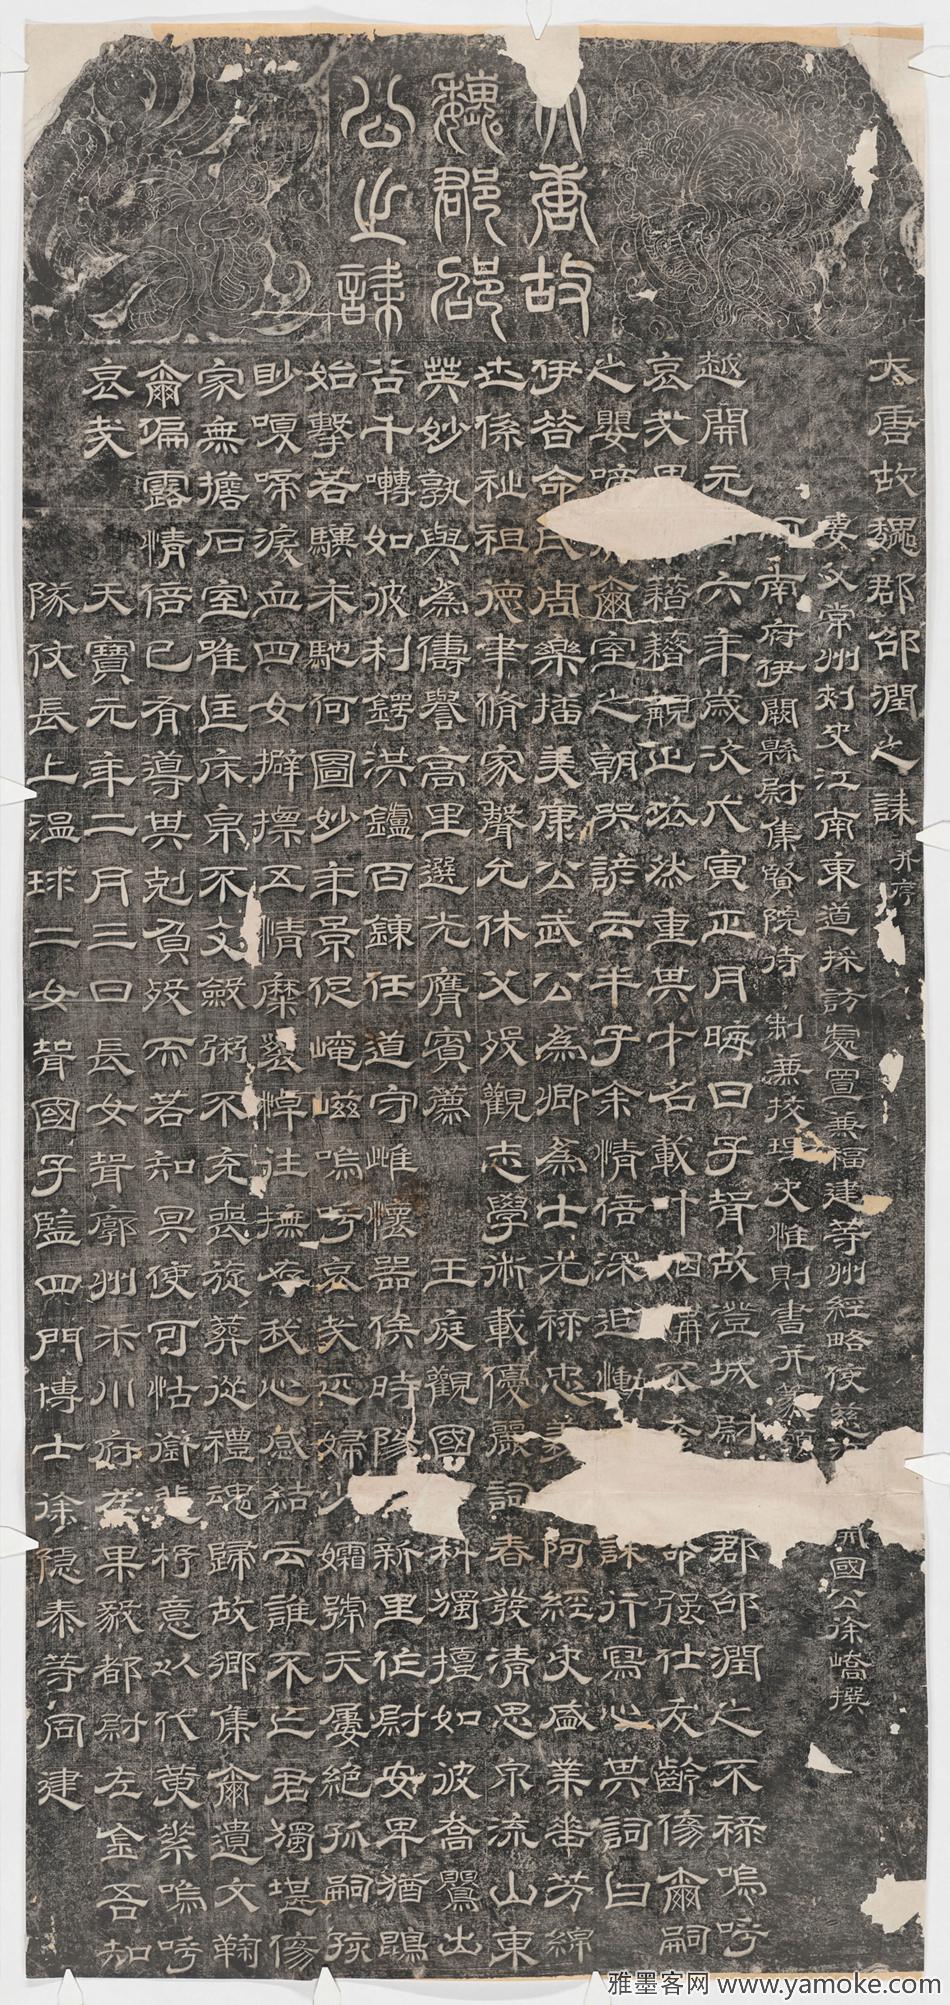 大唐故
魏郡邵
公之誄
大唐故魏郡邵潤之誄并序
妻父常州刺史江南東道採訪處置兼福建等州經略使慈 開國公徐嶠撰
河南府伊闕縣尉集賢院待制兼校理史惟則書并篆額
越開元 六年歲次戊寅正月晦日子壻故澄城尉 郡邵潤之不祿嗚呼
哀哉 藉藉覿止茲然重其才名載 命強仕友齡傷爾嗣
之嬰啼 爾室之朝哭諺云半子余情倍深追慟 誄行寫心其詞曰
伊昔命氏周樂播美康公武公為卿為士光祿忠 阿經史盛業垂芳綿
也係祉祖德聿脩家聲允休父歿觀志學術載優麗詞春發清思泉流山東
英妙孰與為儔譽高里選光膺賓薦 王庭觀國 科獨擅如彼喬鸎出
谷千囀如彼利鍔洪鑪百鍊任道守雌懷器俟時 新里作尉安卑猶鵾
始擊若驥未馳何圖妙年景促崦嵫嗚呼哀哉匹婦少孀號天屢絕孤嗣孩
眇嗄啼淚血四女擗摽五情糜 悼往撫存我心感結云誰不亡君獨堪傷
家無擔石室唯匡床帛不文斂粥不充喪旋葬從禮魂歸故鄉集爾遺文鞠
爾偏露情倍已有導其剋負歿而若知冥使可怙銜悲抒意以代黄絫嗚呼
哀哉
天寶元年二月三日長女壻廓州米川府左果毅都尉左金吾知
隊仗長上温球二女壻國子監四門博士徐隱泰等同建
雅墨客网 www.yamoke.com